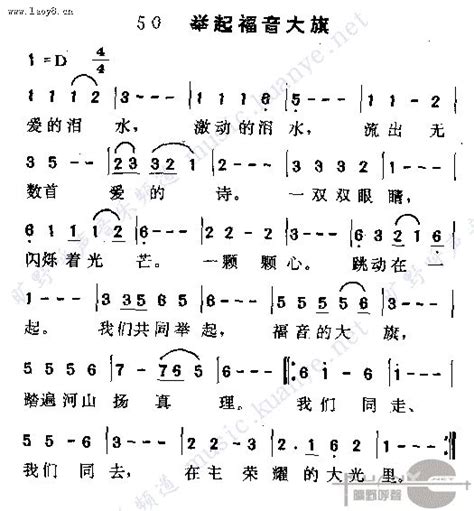 www.1aoy8.cn
50 举起福音大旗
1=D 4/4
1 1 1 2 | 3 - - - | 1 1 1 6 | 5 - - - | 1 1 - 2 |
爱的泪 水, 激动的泪 水, 流出 无
3 5 - - | 23 321 | 2 - - - | 3 3 3 2 | 1 - - - |
数首 爱 的 诗。 一双双眼 睛,
6 1 1 2 | 3 2 1 2 | 6 - - - | 2 2 - 2 | 6 3 2 1 6 |
闪烁着光 芒。 一颗 颗心。 跳动在 一
1 - - - | 3 35 6 5 | 6 - - - | 5 5 5 56 | 3 - - - |
起。 我们共同举 起, 福音的大 旗,
5 5 5 6 | 7 - 7 65 | 5 - - - | 6 6 6 i | i - - - |
踏遍河山 扬 真 理。 我们 同走、
5 5 - 6 | 3 - - - | 2 2 - 3 | 2 . 1 6 2 | 1 - - - |
我们 同去, 在主 荣 耀 的大光 里。
旷野呼声音乐频道 music.kuanye.net
旷野呼声